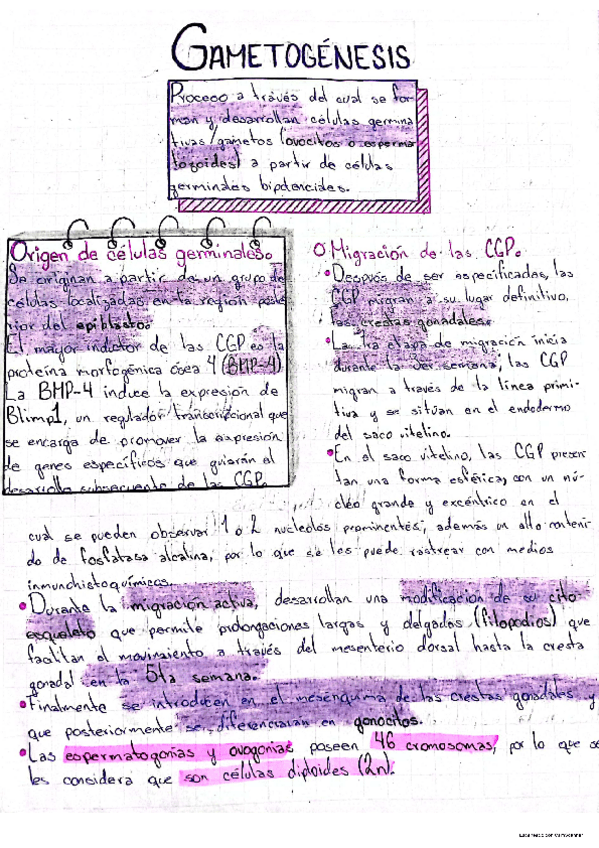 GAMETOGÉNESIS
Proceso a través del cual se for-
man y desarrollan células germina
tivas/gametos (ovocitos o esperma
tozoides) a partir de células
germinales bipotenciales.
Origen de células germinales.
Se originan a partir de un grupo de
células localizadas en la región poste
rior del epiblasto.
El mayor inductor de las CGP es la
proteína morfogénica ósea 4 (BMP-4)
La BMP-4 induce la expresión de
Blimp1, un regulador transcripcional que
se encarga de promover la expresión
de genes específicos que guiarán el
desarrollo subsecuente de las CGP.
Migración de las CGP.
• Después de ser especificadas, las
CGP migran a su lugar definitivo,
las crestas gonadales.
• La 1ra etapa de migración inicia
durante la 3er semana, las CGP
migran a través de la línea primi-
tiva y se sitúan en el endodermo
del saco vitelino.
• En el saco vitelino, las CGP presen
tan una forma esférica, con un nú-
cleo grande y excéntrico en el
cual se pueden observar 1 o 2 nucleolos prominentes, además un alto conteni-
do de fosfatasa alcalina, por lo que se les puede rastrear con medios
inmunohistoquímicos.
• Durante la migración activa, desarrollan una modificación de su cito
esqueleto que permite prolongaciones largas y delgadas (filopodios) que
facilitan el movimiento a través del mesenterio dorsal hasta la cresta
gonadal en la 5ta semana.
• Finalmente se introducen en el mesénquima de las crestas gonadales y
que posteriormente se diferenciarán en gonocitos.
• Las espermatogonias y ovogonias poseen 46 cromosomas, por lo que se
les considera que son células diploides (2n).